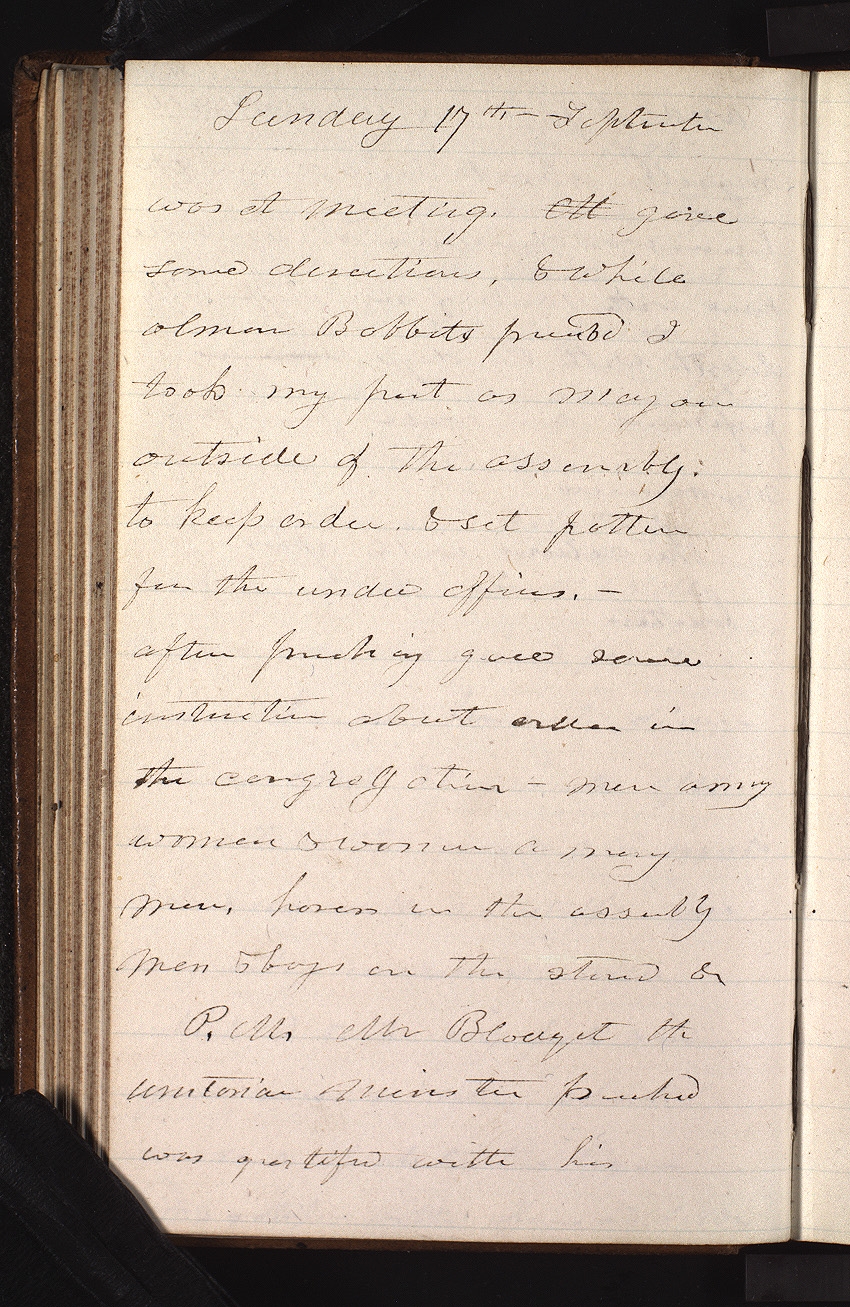 Sunday 17th - September
was at meeting. gave
some directions, & while
almon Babbits preachd I
took my post as Mayor
outside of the assembly.
to keep order. & set pattern
for the under officers. -
after preaching gave some
instruction about order in
the congregation - men among
women & women among
men, horses in the assembly
Men & boys on the stand &c
P.M. Mr Blodget the
unitarian Minister preached
was gratified with his